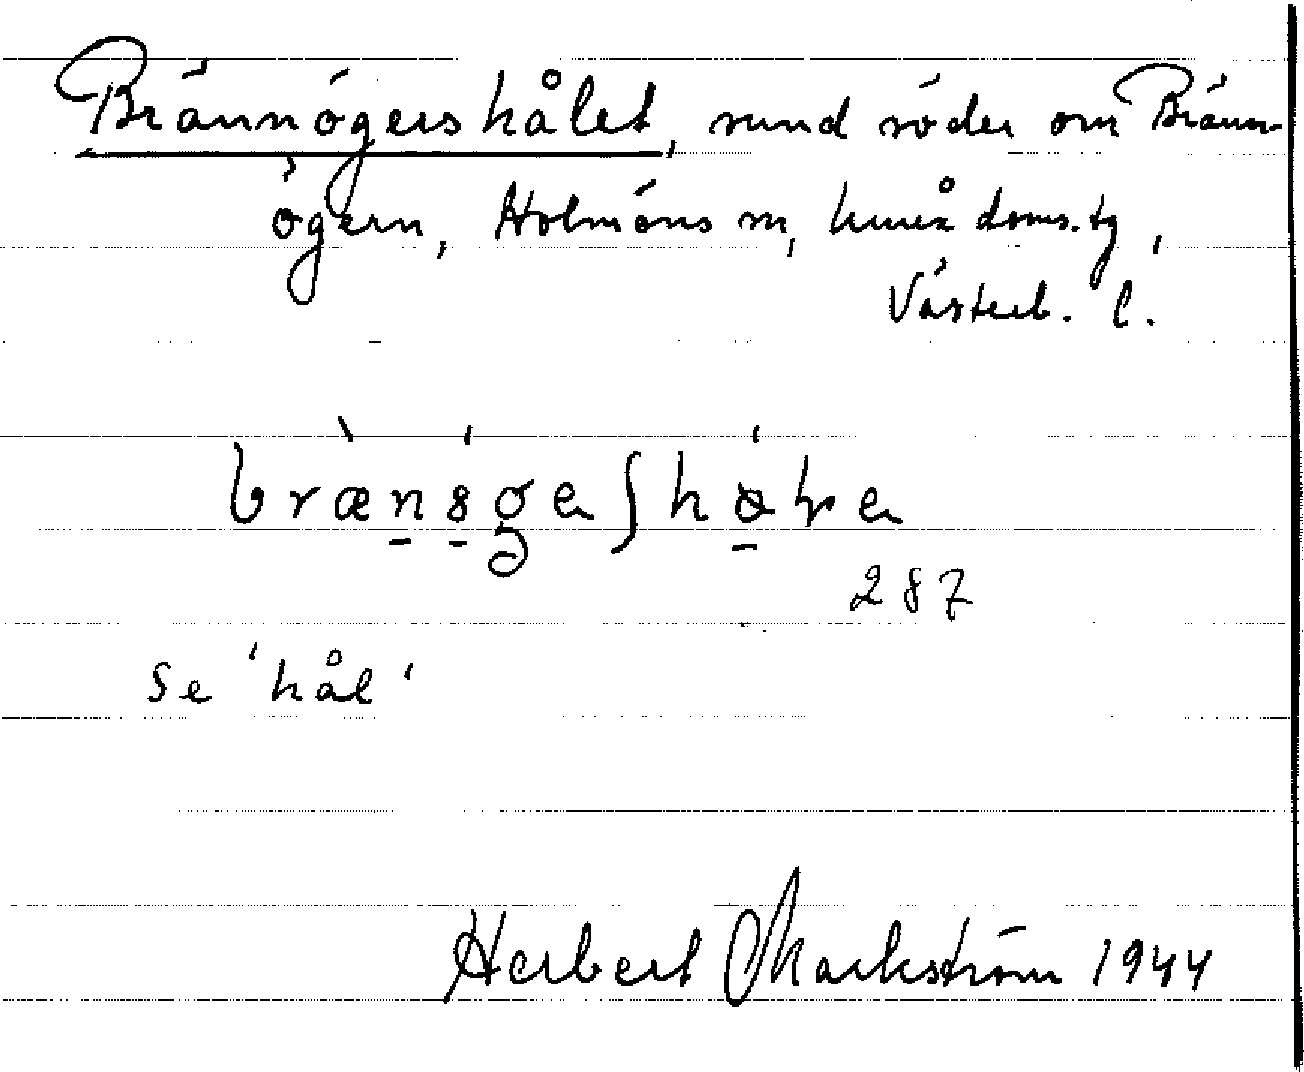 Brännögershålet, sund söder om Bränn-
ögern, Holmöns sn, Umeå doms. tg,
Västerb. l.
287
Se 'hål'
Herbert Markström 1944